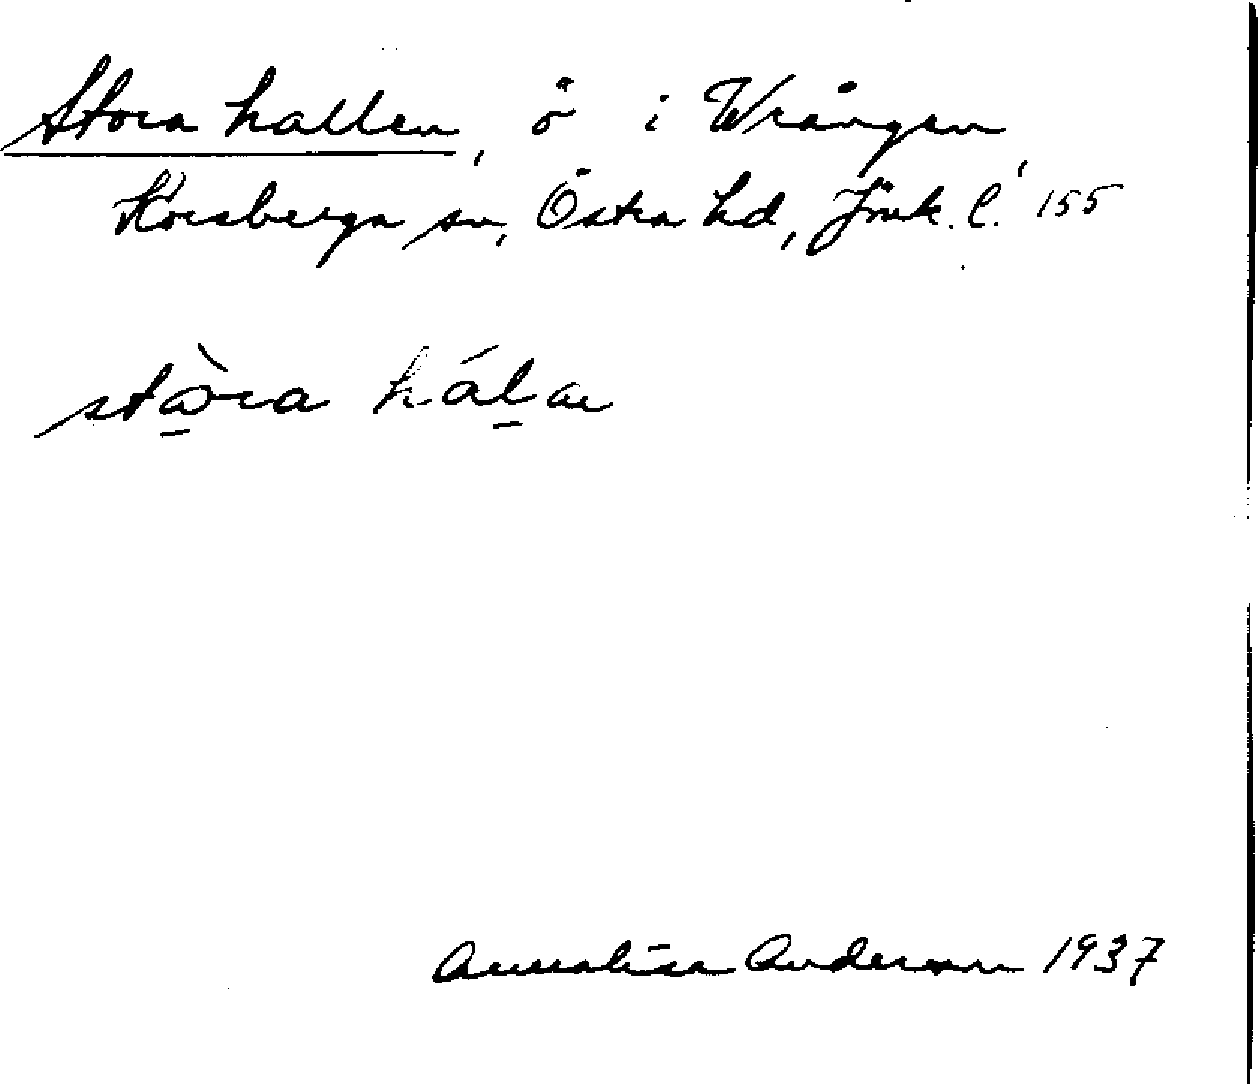 Stora hallen, ö i Wrången,
Korsberga sn, Östra hd, Jönk. l. 155
stò̠ra hál̠an
Annalisa Anderson 1937